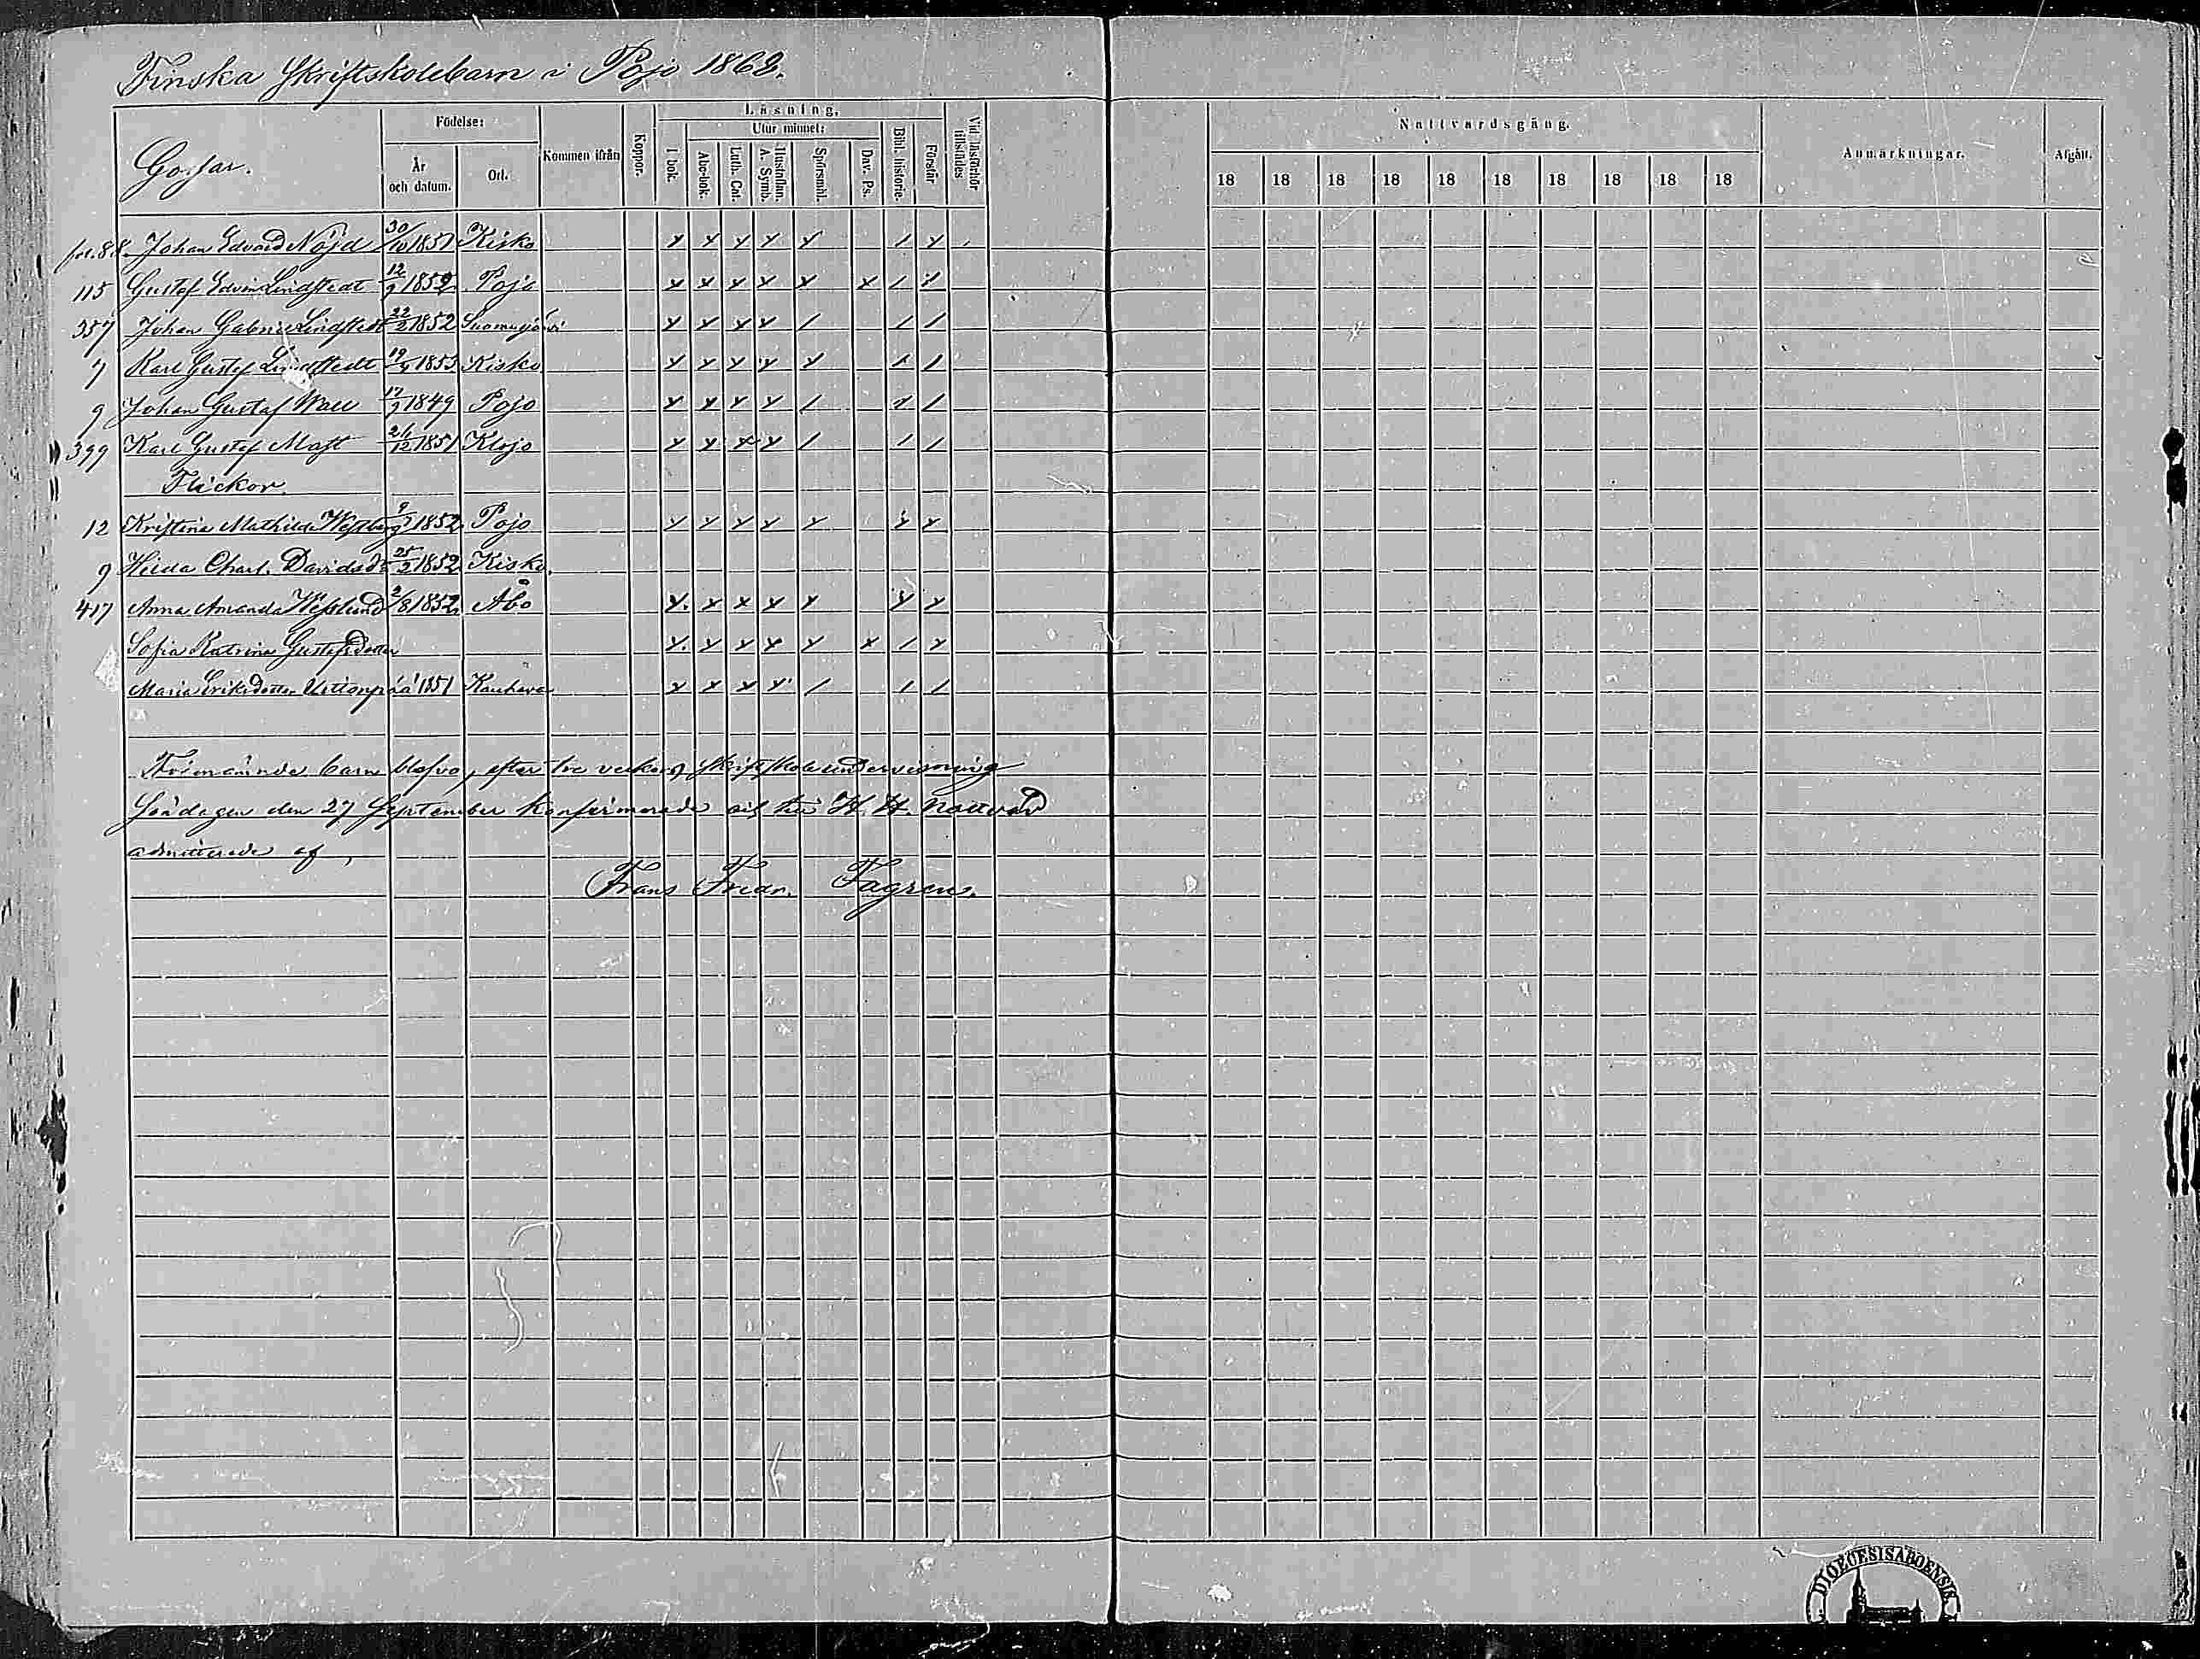 Finska Skriftskolebarn i Pojo 1868.
Gossar.
Födelse:
År och datum.
Ort.
Kommen ifrån
Koppor.
Läsning.
I bok.
Utur minnet:
Abc-bok.
Luth. Cat.
Hustaflan. A. Symb.
Spörsmål.
Dav. Ps.
Bibl. historie.
Förstår
Vid Läsförhör tillstädes
Nattvardsgång.
18 18 18 18 18 18 18 18 18 18
Anmärkningar.
Afgått.
fol. 88. Johan Edvard Nöjd 30/10 1851 Kisko
115 Gustaf Edvin Lindstedt 12/9 1852 Pojo
357 Johan Gabriel Lindstedt 22/2 1852 Suomusjärvi
7 Karl Gustaf Lindstedt 19/4 1853 Kisko
9 Johan Gustaf Wall 17/9 1849 Pojo
399 Karl Gustaf Mast 26/12 1851 Klojo
Flickor.
12 Kristina Mathilda Westberg 9/9 1852 Pojo
9 Hilda Charl. Davidsdr 25/2 1852 Kisko
417 Anna Amanda Wesslund 2/8 1852 Åbo
Sofia Katrina Gustafsdotter
Maria Eriksdotter 1851 Kauhava
Förenämnde barn blefvo, efter tre veckors skriftskoleundervisning
Söndagen den 27 September konfirmerade och till H. H. nattvard
admitterade af,
Frans Fredr. Fagren.
DIOECESIS ABOENSIS